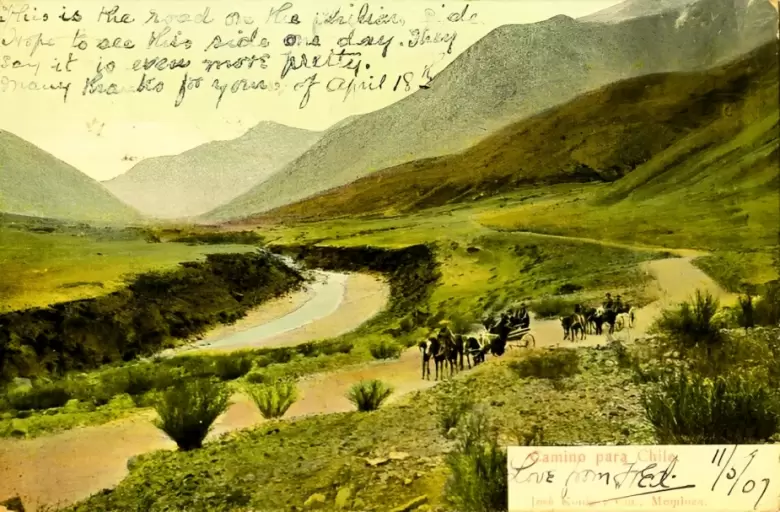 This is the road on the Chilian side
Hope to see this side one day. They
say it is even more pretty.
Many thanks for yours of April 18th
Camino para Chile.
Love from
11/5/07
José Mendoza.